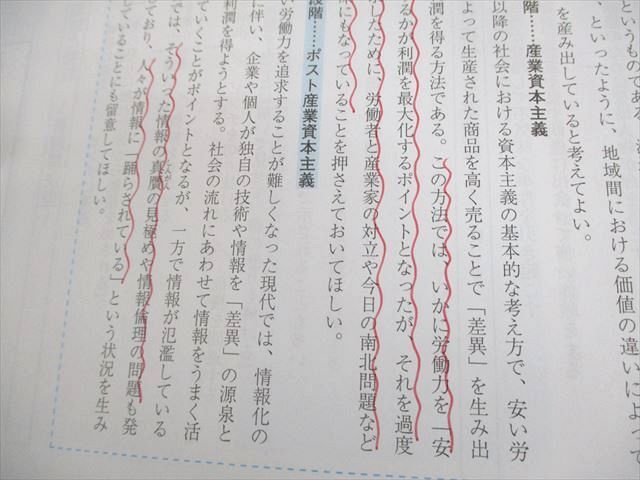 というものである。
、といったように、地域間における価値の違いによって
を産み出していると考えてよい。
階……産業資本主義
以降の社会における資本主義の基本的な考え方で、安い労
よって生産された商品を高く売ることで「差異」を生み出
潤を得る方法である。この方法では、いかに労働力を「安
るかが利潤を最大化するポイントとなったが、それを過度
したために、労働者と産業家の対立や今日の南北問題など
にもなっていることを押さえておいてほしい。
段階……ポスト産業資本主義
い労働力を追求することが難しくなった現代では、情報化の
に伴い、企業や個人が独自の技術や情報を「差異」の源泉と
利潤を得ようとする。社会の流れにあわせて情報をうまく活
ていくことがポイントとなるが、一方で情報が氾濫している
では、そういった情報の真贋の見極めや情報倫理の問題も発
しんがん
ており、人々が情報に「踊らされている」という状況を生み
していることにも留意してほしい。